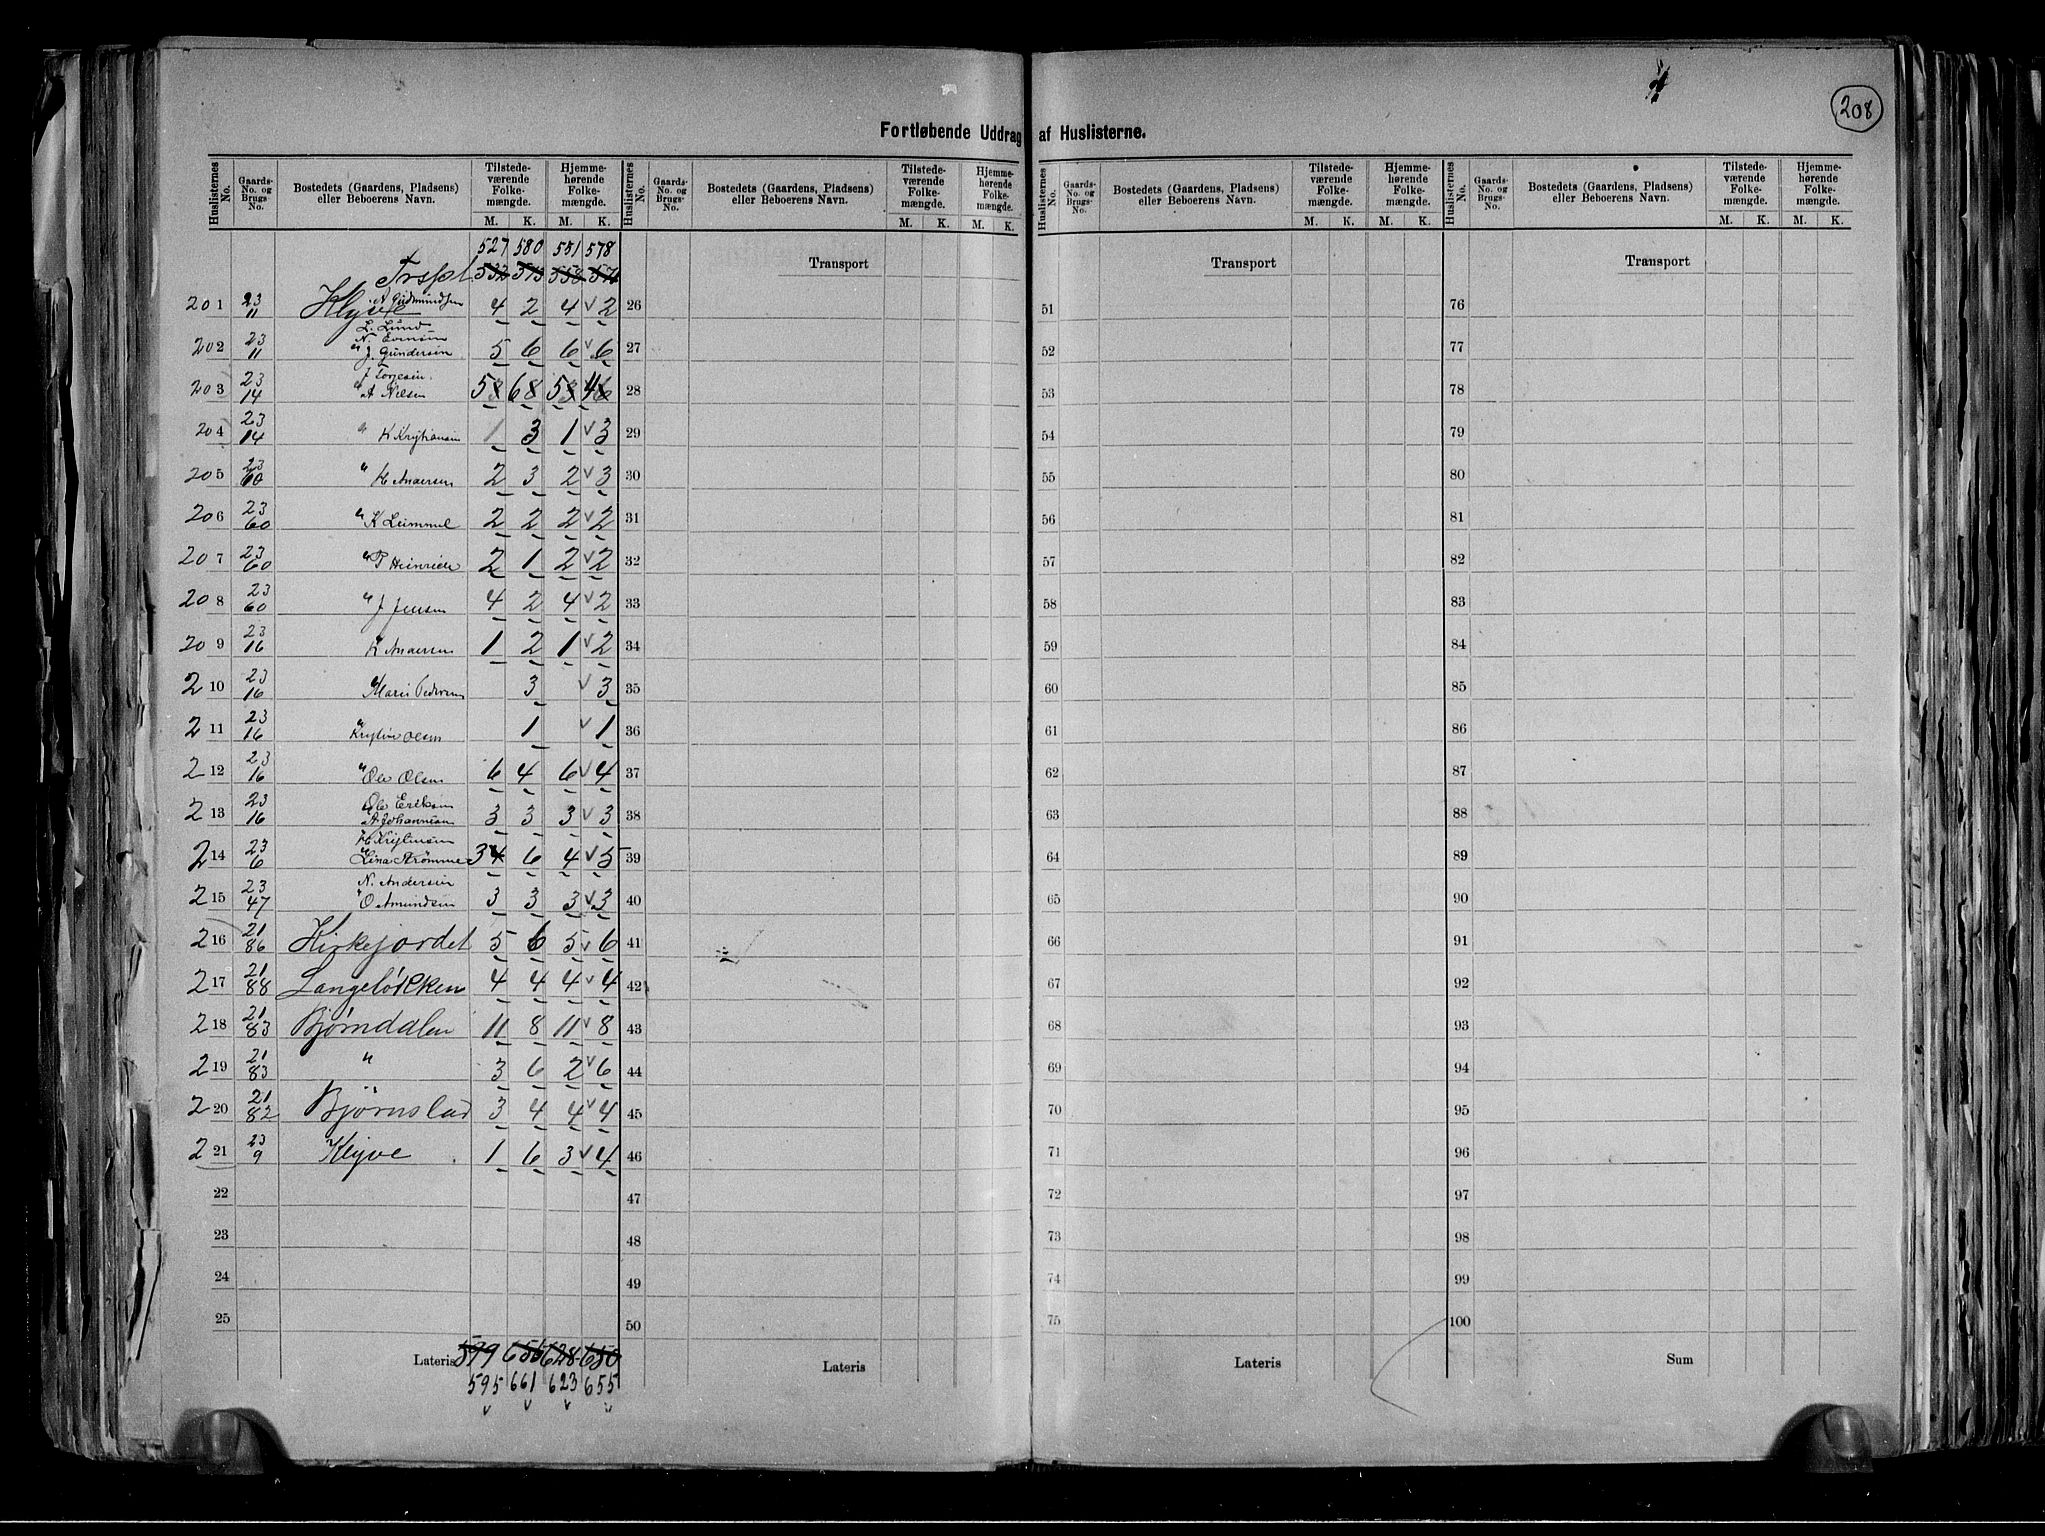 208
Fortløbende Uddrag af Huslisterne.
Huslisternes No. Gaards-No. og Brugs-No. Bostedets (Gaardens, Pladsens) eller Beboerens Navn. Tilstedeværende Folkemængde. M. K. Hjemmehørende Folkemængde. M. K.
Huslisternes No. Gaards-No. og Brugs-No. Bostedets (Gaardens, Pladsens) eller Beboerens Navn. Tilstedeværende Folkemængde. M. K. Hjemmehørende Folkemængde. M. K.
Huslisternes No. Gaards-No. og Brugs-No. Bostedets (Gaardens, Pladsens) eller Beboerens Navn. Tilstedeværende Folkemængde. M. K. Hjemmehørende Folkemængde. M. K.
Huslisternes No. Gaards-No. og Brugs-No. Bostedets (Gaardens, Pladsens) eller Beboerens Navn. Tilstedeværende Folkemængde. M. K. Hjemmehørende Folkemængde. M. K.
527 580 551 578
Trspt. Transport Transport Transport
201 23/11 Klyve A Gudmundsen 4 2 4 2 26 51 76
L. Lund
N. Evensen
202 23/11 " J. Gundersen 5 6 6 6 27 52 77
J Torjesen
203 23/14 " A Nilsen 5 6 5 4 28 53 78
204 23/14 " K Kristiansen 1 3 1 3 29 54 79
205 23/60 " H Andersen 2 3 2 3 30 55 80
206 23/60 " K Lummel 2 2 2 2 31 56 81
207 23/60 " P Heinrich 2 1 2 2 32 57 82
208 23/60 " J Jensen 4 2 4 2 33 58 83
209 23/16 " K Andersen 1 2 1 2 34 59 84
210 23/16 " Maria Pedersen 3 3 35 60 85
211 23/16 " Kristine Olsen 1 1 36 61 86
212 23/16 " Ole Olsen 6 4 6 4 37 62 87
Ole Eriksen
213 23/16 " A Johannesen 3 3 3 3 38 63 88
H Kristensen
214 23/6 " Lina Strømme 3 6 4 5 39 64 89
N. Andersen
215 23/47 " O Amundsen 3 3 3 3 40 65 90
216 21/86 Kirkejordet 5 6 5 6 41 66 91
217 21/88 Langeløkken 4 4 4 4 42 67 92
218 21/83 Bjørndalen 11 8 11 8 43 68 93
219 21/83 " 3 6 2 6 44 69 94
220 21/82 Bjørnstad 3 4 4 4 45 70 95
221 23/9 Klyve 1 6 3 4 46 71 96
22 47 72 97
23 48 73 98
24 49 74 99
25 50 75 100
Lateris 599 656 628 650 Lateris Lateris Sum
595 661 623 655